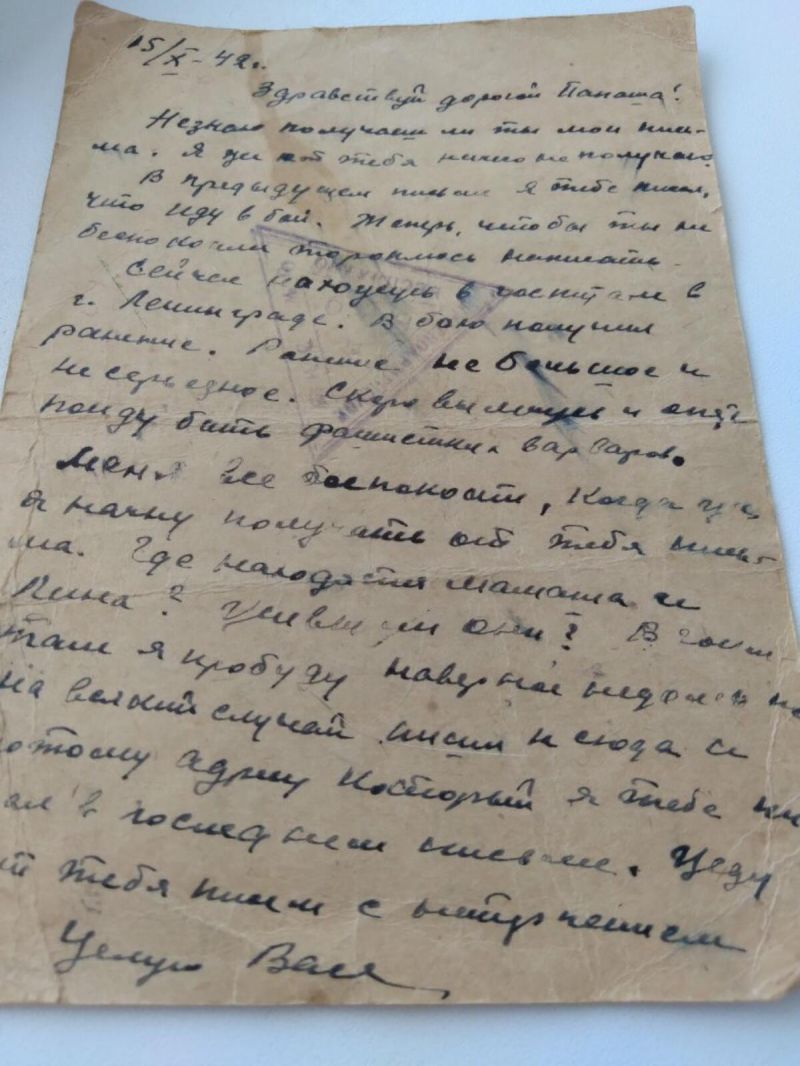 15/X-42г.
Здравствуй дорогой Папаша!
Незнаю получаеш ли ты мои пись-
ма. Я от тебя ничего не получаю.
В предыдущем письме я тебе писал,
что иду в бой. Теперь, чтобы ты не
беспокоился тороплюсь написать.
Сейчас нахожусь в госпитале в
г. Ленинграде. В бою получил
ранение. Ранение не большое и
не серьезное. Скоро вылечусь и опять
пойду бить фашистких варваров.
Меня все беспокоит, когда же
я начну получать от тебя пись-
ма. Где находятся мамаша и
Нина? Живы ли они? В госпи-
тале я пробуду наверное недолго но
на всякий случай пиши и сюда и
потому адресу который я тебе пи
сал в последнем письме. Жду
от тебя писем с нетерпением
Целую Валя